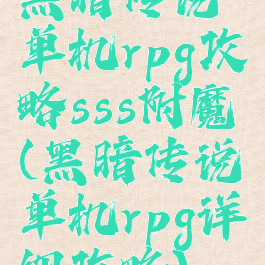 黑暗传说
单机rpg攻
略sss附魔
(黑暗传说
单机rpg详
细攻略)